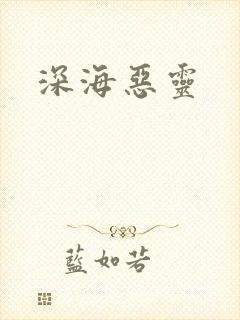 深海惡靈
藍如若